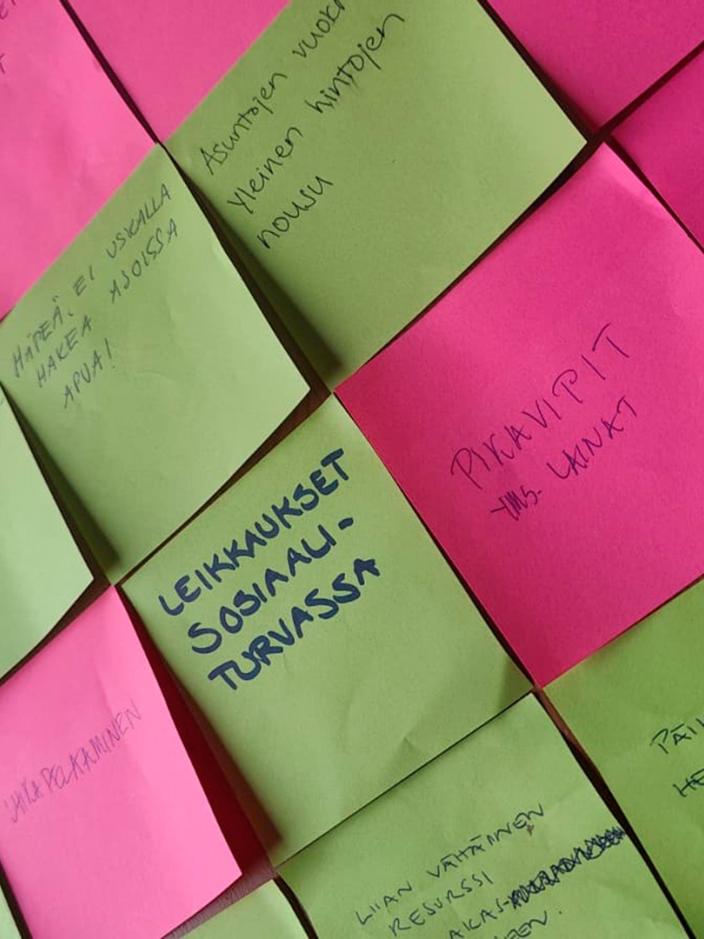 Asuntojen
yleinen hintojen
nousu
HÄPEÄ, EI USKALLA
HAKEA ASOISSA
APUA!
PIKAVIPIT
YMS. LAINAT
LEIKKAUKSET
SOSIAALI-
TURVASSA
LIIAN VÄHÄINEN
RESURSSI